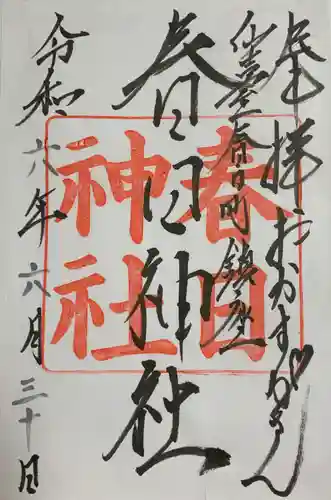 奉拝 おかすがさん
仙臺春日町鎮座
春日神社
令和六年六月三十日
春日
神社